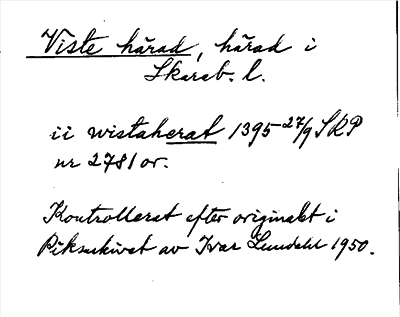 Viste härad, härad i
Skarab. l.
ii wistaherat 1395 27/9 SRP
nr 2781 or.
Kontrollerat efter originalet i
Riksarkivet av Ivar Lundahl 1950.